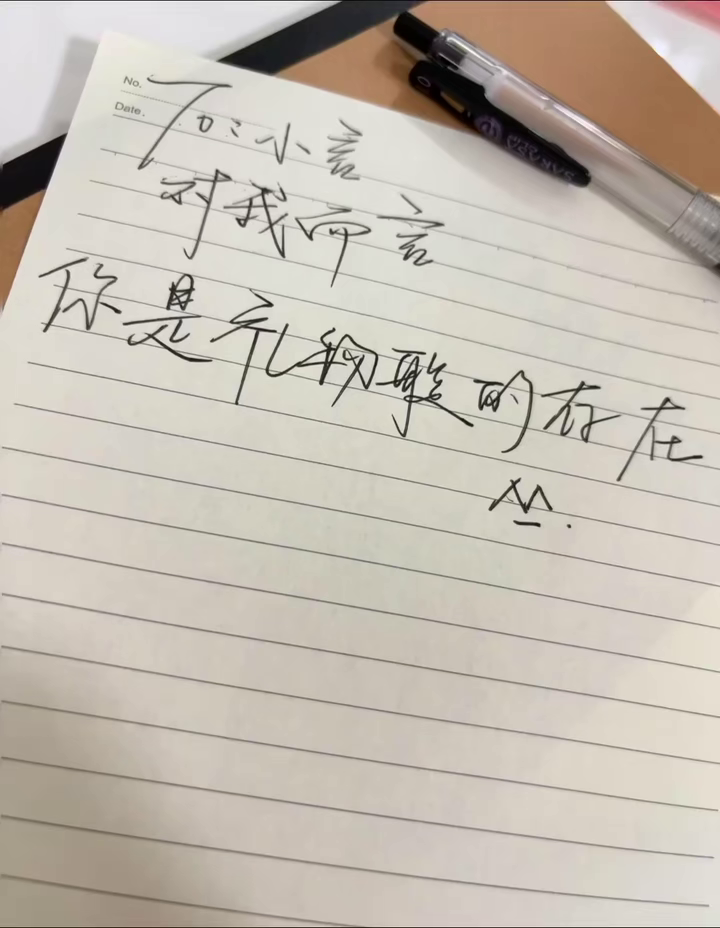 No.
Date.
To:小言
对我而言
你是礼物般的存在
丛.
SAKURA